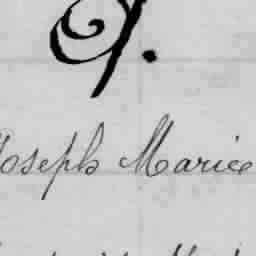 J.
Joseph Marice